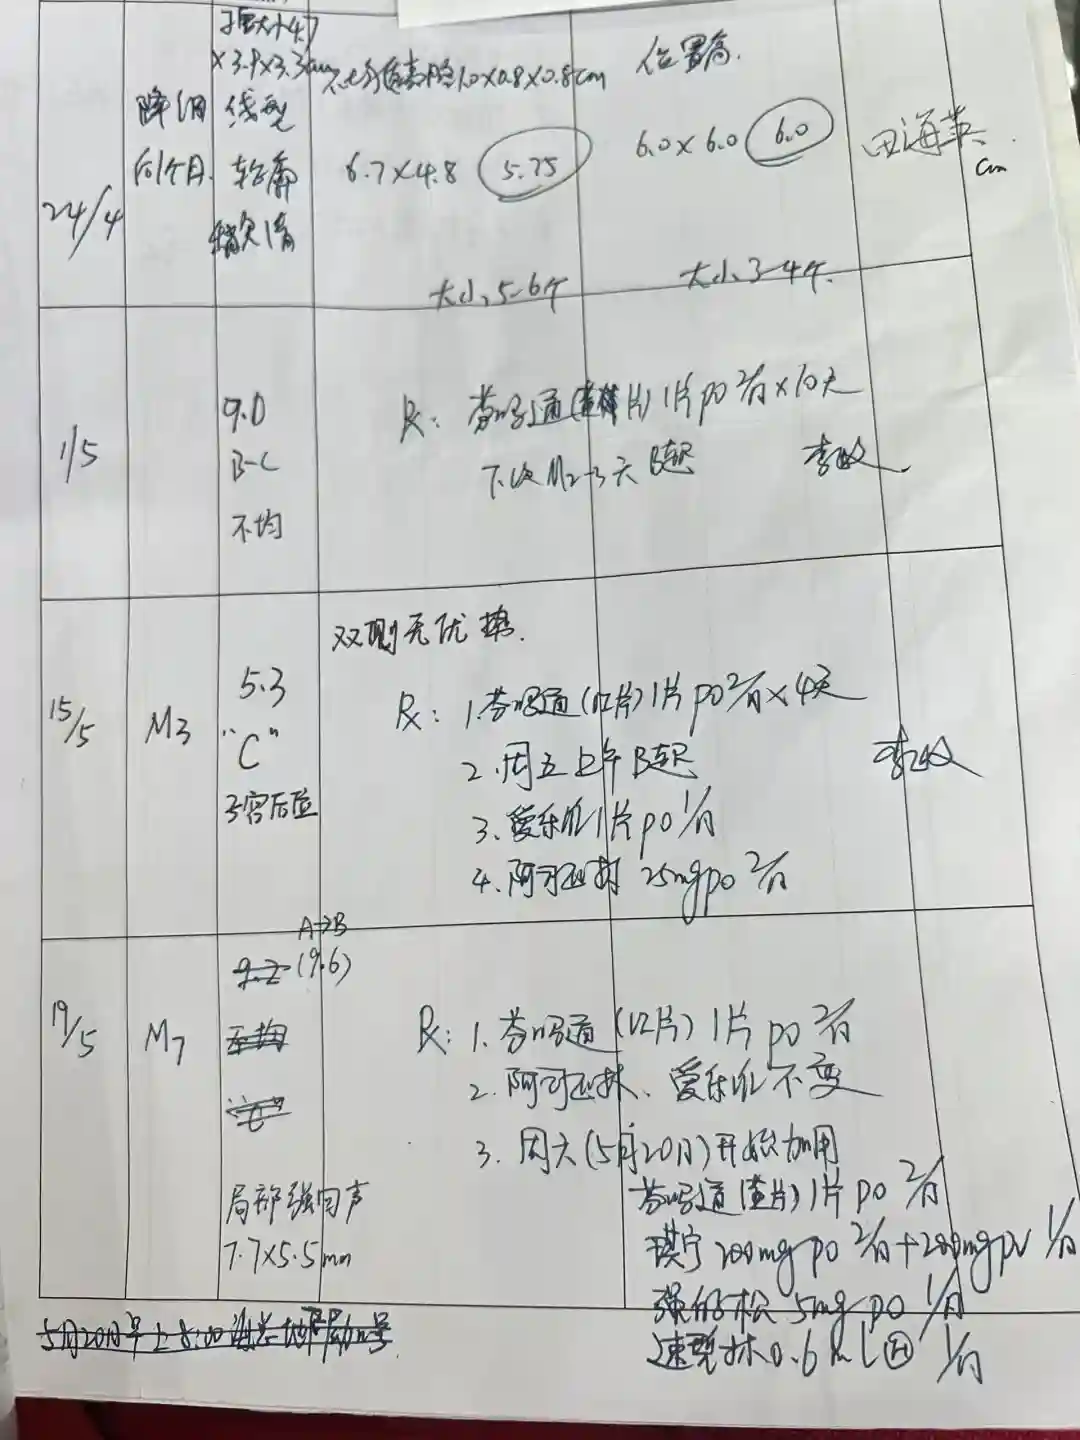 24/4
降调
后1个月
大小4.7
×3.9×3.3cm
线型
轮廓
欠清
1.0×0.8×0.8cm
6.7×4.8 5.75
大小5-6个
位置高.
6.0×6.0 6.0
大小3-4个.
cm
田海英
1/5
9.0
B-C
不均
Rx: 芬吗通(黄片)1片 po 2/日×10天
下次M2-3天B超
李敏
15/5
M3
5.3
"C"
子宫后位
双侧无优势.
Rx: 1.芬吗通(红片)1片 po 2/日×4天
2.周五上午B超
3.爱乐维1片 po 1/日
4.阿司匹林 25mg po 2/日
李敏
19/5
M7
A→B
9.2 (9.6)
不均
"C"
局部强回声
7.7×5.5mm
Rx: 1.芬吗通(红片)1片 po 2/日
2.阿司匹林、爱乐维不变
3.周六(5月20日)开始加用
芬吗通(黄片)1片 po 2/日
琪宁 200mg po 2/日+200mg pv 1/日
强的松 5mg po 1/日
速碧林0.6ml 1/日
5月20日早上8:00